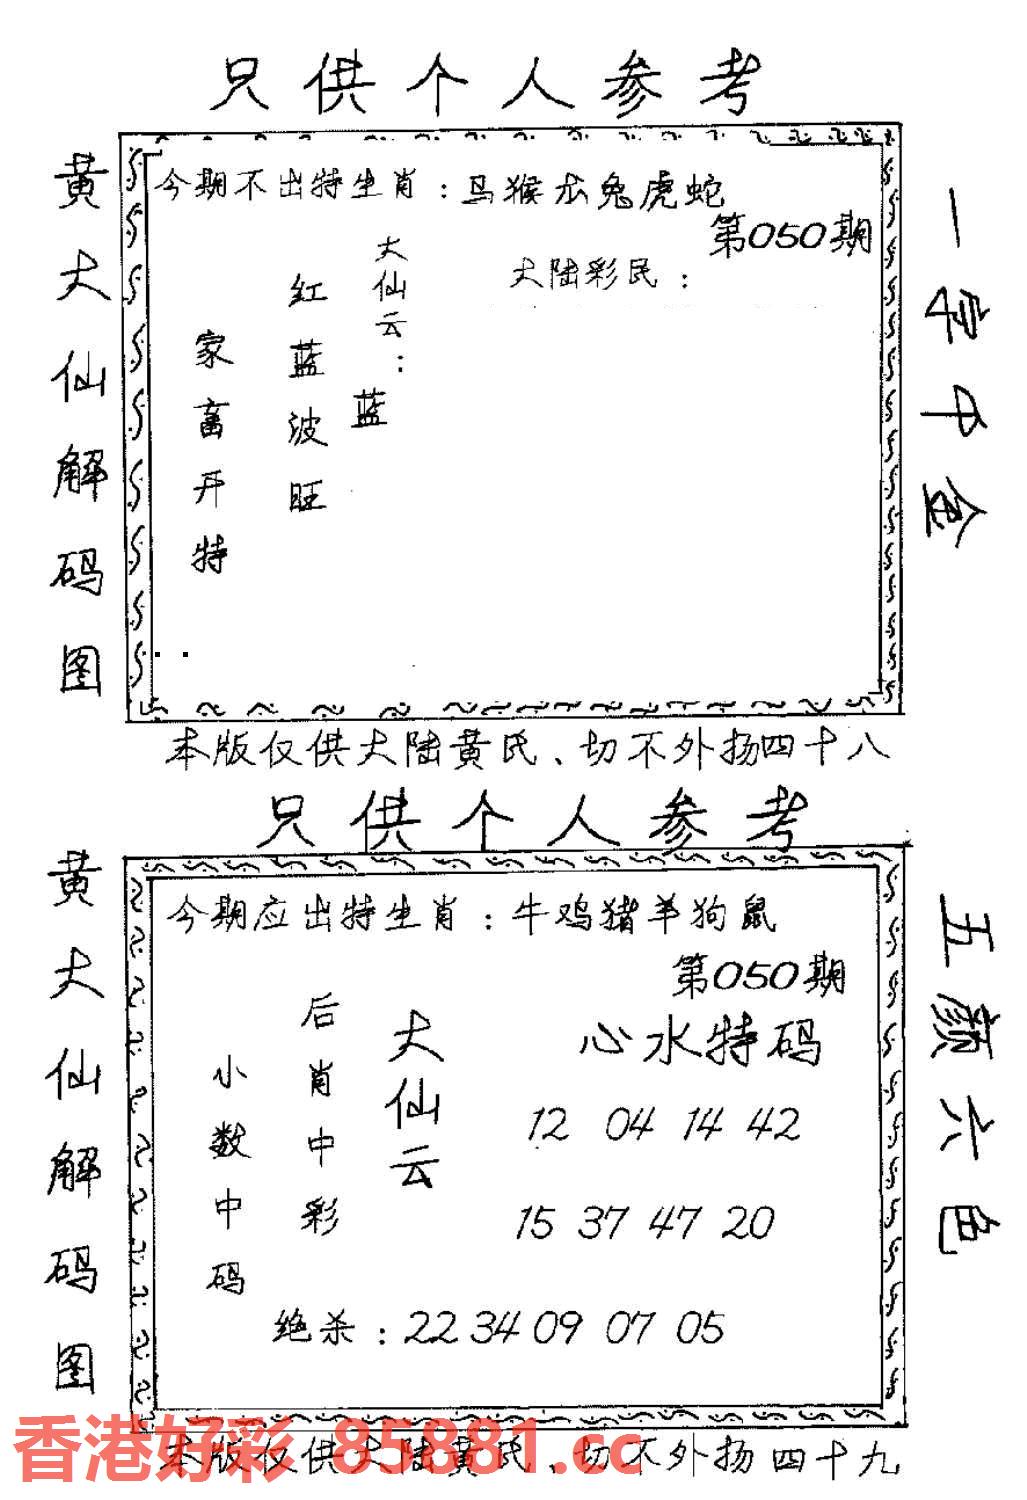 只供个人参考
黄大仙解码图
今期不出特生肖：马猴龙兔虎蛇
第050期
大陆彩民：
大仙云：
蓝
红蓝波旺
家畜开特
一字中金
本版仅供大陆黄氏、切不外扬四十八
只供个人参考
黄大仙解码图
今期应出特生肖：牛鸡猪羊狗鼠
第050期
心水特码
12 04 14 42
15 37 47 20
大仙云
后肖中彩
小数中码
绝杀：22 34 09 07 05
五颜六色
香港好彩 85881.cc
本版仅供大陆黄氏、切不外扬四十九